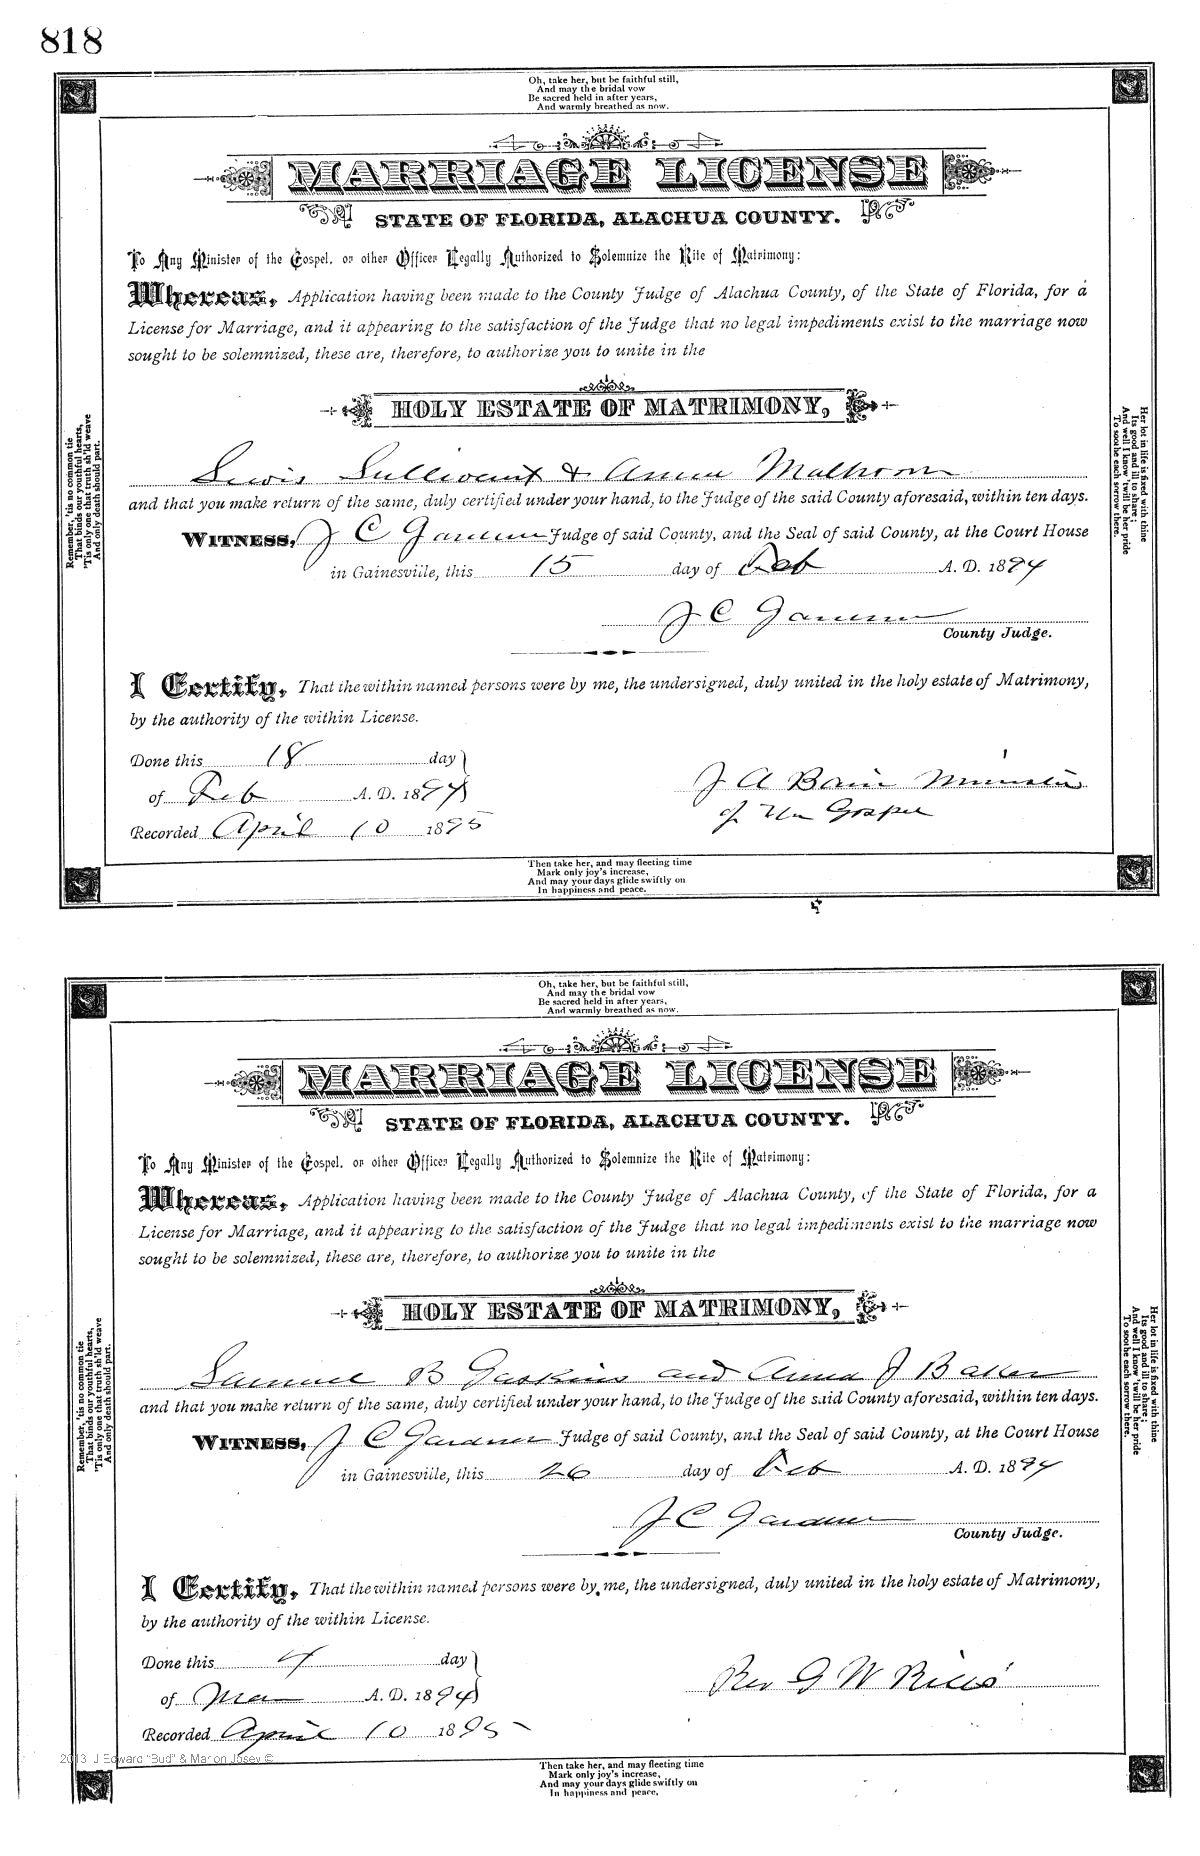 818
Oh, take her, but be faithful still,
And may the bridal vow
Be sacred held in after years,
And warmly breathed as now.
MARRIAGE LICENSE
STATE OF FLORIDA, ALACHUA COUNTY.
To Any Minister of the Gospel, or other Officer Legally Authorized to Solemnize the Rite of Matrimony:
Whereas, Application having been made to the County Judge of Alachua County, of the State of Florida, for a
License for Marriage, and it appearing to the satisfaction of the Judge that no legal impediments exist to the marriage now
sought to be solemnized, these are, therefore, to authorize you to unite in the
HOLY ESTATE OF MATRIMONY,
Lewis Sullivant & Anna
and that you make return of the same, duly certified under your hand, to the Judge of the said County aforesaid, within ten days.
WITNESS, J C Gardner Judge of said County, and the Seal of said County, at the Court House
in Gainesville, this 15 day of Feb A. D. 1894
J C Gardner
County Judge.
I Certify, That the within named persons were by me, the undersigned, duly united in the holy estate of Matrimony,
by the authority of the within License.
Done this 18 day
of Feb A. D. 1894
J A Bain Minister
of the Gospel
Recorded April 10 1895
Remember, 'tis no common tie
That binds our youthful hearts,
'Tis only one that truth sh'ld weave
And only death should part.
Her lot in life is fixed with thine
Its good and ill to share;
And well I know 'twill be her pride
To soothe each sorrow there.
Then take her, and may fleeting time
Mark only joy's increase,
And may your days glide swiftly on
In happiness and peace.
Oh, take her, but be faithful still,
And may the bridal vow
Be sacred held in after years,
And warmly breathed as now.
MARRIAGE LICENSE
STATE OF FLORIDA, ALACHUA COUNTY.
To Any Minister of the Gospel, or other Officer Legally Authorized to Solemnize the Rite of Matrimony:
Whereas, Application having been made to the County Judge of Alachua County, of the State of Florida, for a
License for Marriage, and it appearing to the satisfaction of the Judge that no legal impediments exist to the marriage now
sought to be solemnized, these are, therefore, to authorize you to unite in the
HOLY ESTATE OF MATRIMONY,
Samuel B Gaskins and Anna J Baker
and that you make return of the same, duly certified under your hand, to the Judge of the said County aforesaid, within ten days.
WITNESS, J C Gardner Judge of said County, and the Seal of said County, at the Court House
in Gainesville, this 26 day of Feb A. D. 1894
J C Gardner
County Judge.
I Certify, That the within named persons were by me, the undersigned, duly united in the holy estate of Matrimony,
by the authority of the within License.
Done this 4 day
of Mar A. D. 1894
Rev G W
Recorded April 10 1895
2013 J Edward "Bud" & Marion Josey ©
Remember, 'tis no common tie
That binds our youthful hearts,
'Tis only one that truth sh'ld weave
And only death should part.
Her lot in life is fixed with thine
Its good and ill to share;
And well I know 'twill be her pride
To soothe each sorrow there.
Then take her, and may fleeting time
Mark only joy's increase,
And may your days glide swiftly on
In happiness and peace,